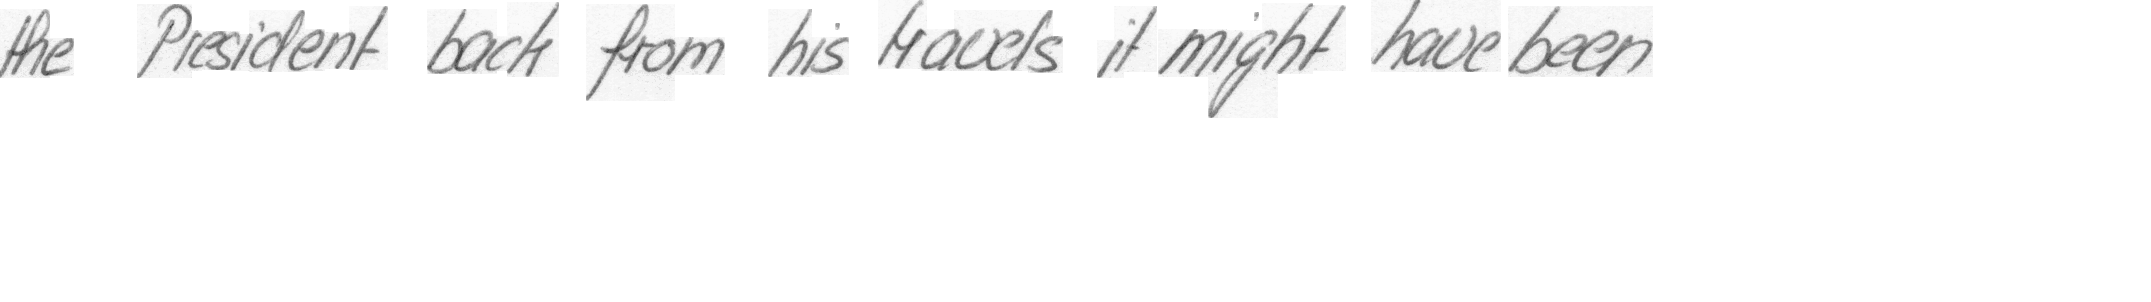 the President back from his travels it might have been